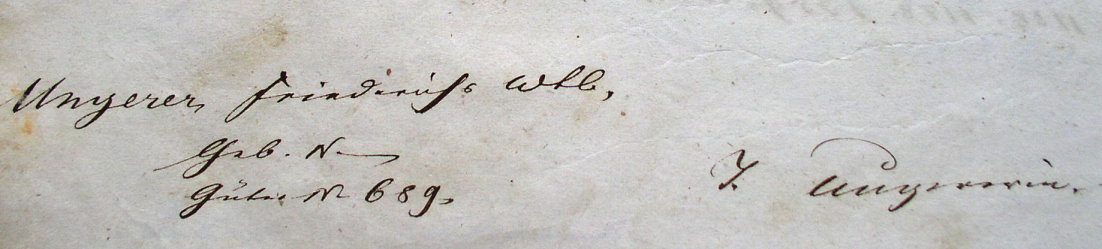 Ungerer, Friedrichs Wtb,
Geb. N. —
Güter N 689.
F. Ungererin.